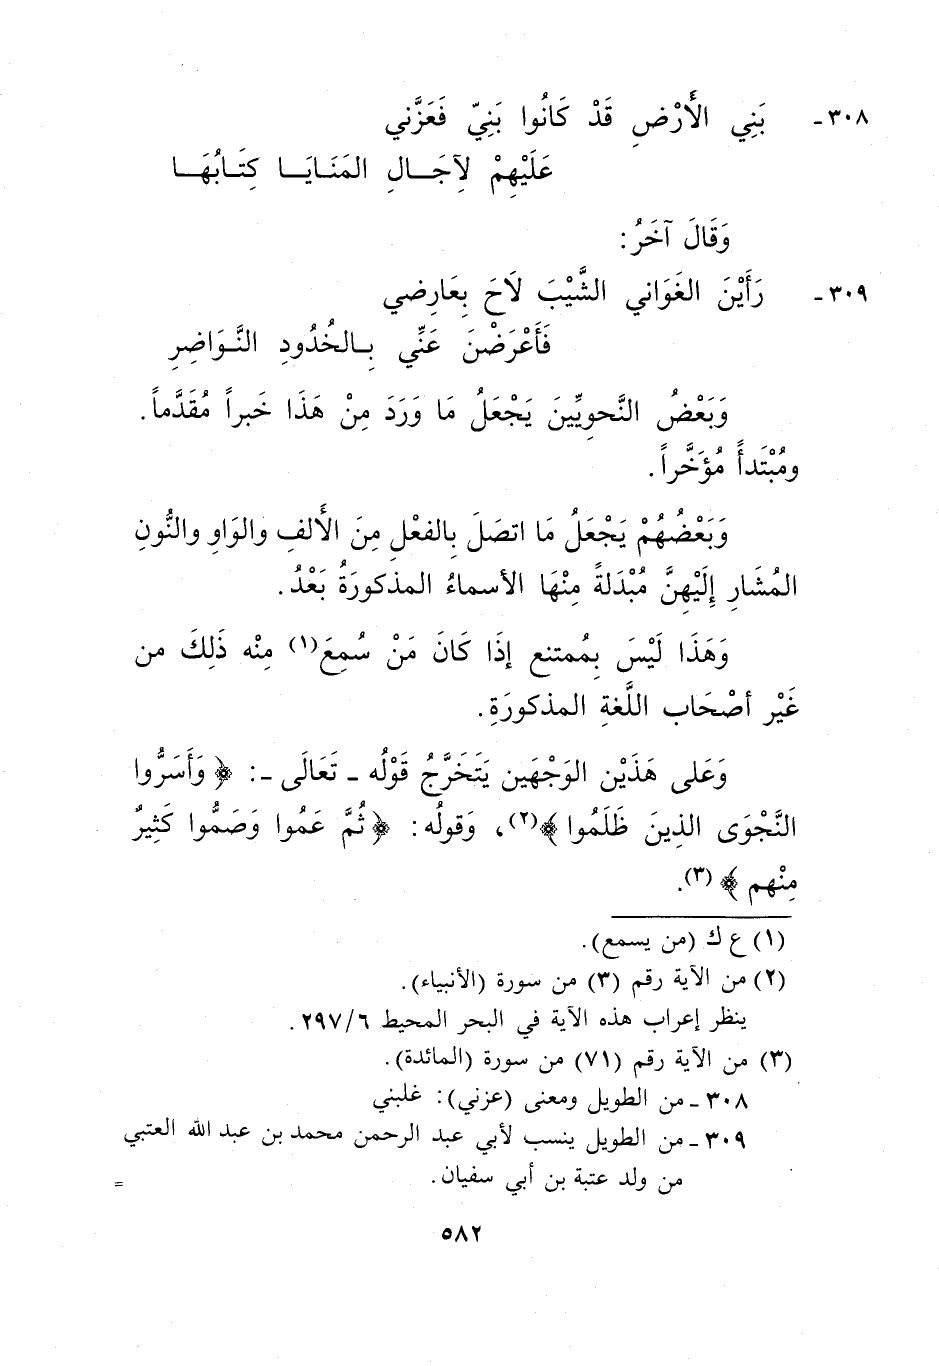 ٣٠٨ - بَنِي الأَرْضِ قَدْ كَانُوا بَنِيّ فَعَزَّني
عَلَيْهِمْ لِآجَـالِ المَنَايَـا كِتَـابُهَـا
وَقَالَ آخَرُ:
٣٠٩ - رَأَيْنَ الغَوَاني الشَّيْبَ لَاحَ بِعَارِضي
فَأَعْرَضْنَ عَنِّي بِـالخُدُودِ النَّـوَاضِرِ
وَبَعْضُ النَّحويِّينَ يَجْعَلُ مَا وَرَدَ مِنْ هَذَا خَبراً مُقَدَّماً.
ومُبْتَدأً مُؤَخَّراً.
وَبَعْضُهُمْ يَجْعَلُ مَا اتصَلَ بِالفعْلِ مِنَ الأَلفِ والوَاوِ والنُّونِ
المُشَارِ إِلَيْهِنَّ مُبْدَلةً مِنْهَا الأسماءُ المذكورَةُ بَعْدُ.
وَهَذَا لَيْسَ بِمُمتنع إذَا كَانَ مَنْ سُمِعَ(١) مِنْه ذَلِكَ من
غَيْر أصْحَاب اللَّغةِ المذكورَةِ.
وَعَلى هَذَيْن الوَجْهَين يَتَخَرَّجُ قَوْلُه - تَعَالَى -: ﴿وَأَسَرُّوا
النَّجْوَى الذِينَ ظَلَمُوا﴾(٢)، وَقولُه: ﴿ثُمَّ عَمُوا وَصَمُّوا كَثِيرٌ
مِنْهم﴾(٣).
(١) ع ك (من يسمع).
(٢) من الآية رقم (٣) من سورة (الأنبياء).
ينظر إعراب هذه الآية في البحر المحيط ٢٩٧/٦.
(٣) من الآية رقم (٧١) من سورة (المائدة).
٣٠٨ - من الطويل ومعنى (عزني): غلبني
٣٠٩ - من الطويل ينسب لأبي عبد الرحمن محمد بن عبد الله العتبي
من ولد عتبة بن أبي سفيان. =
٥٨٢